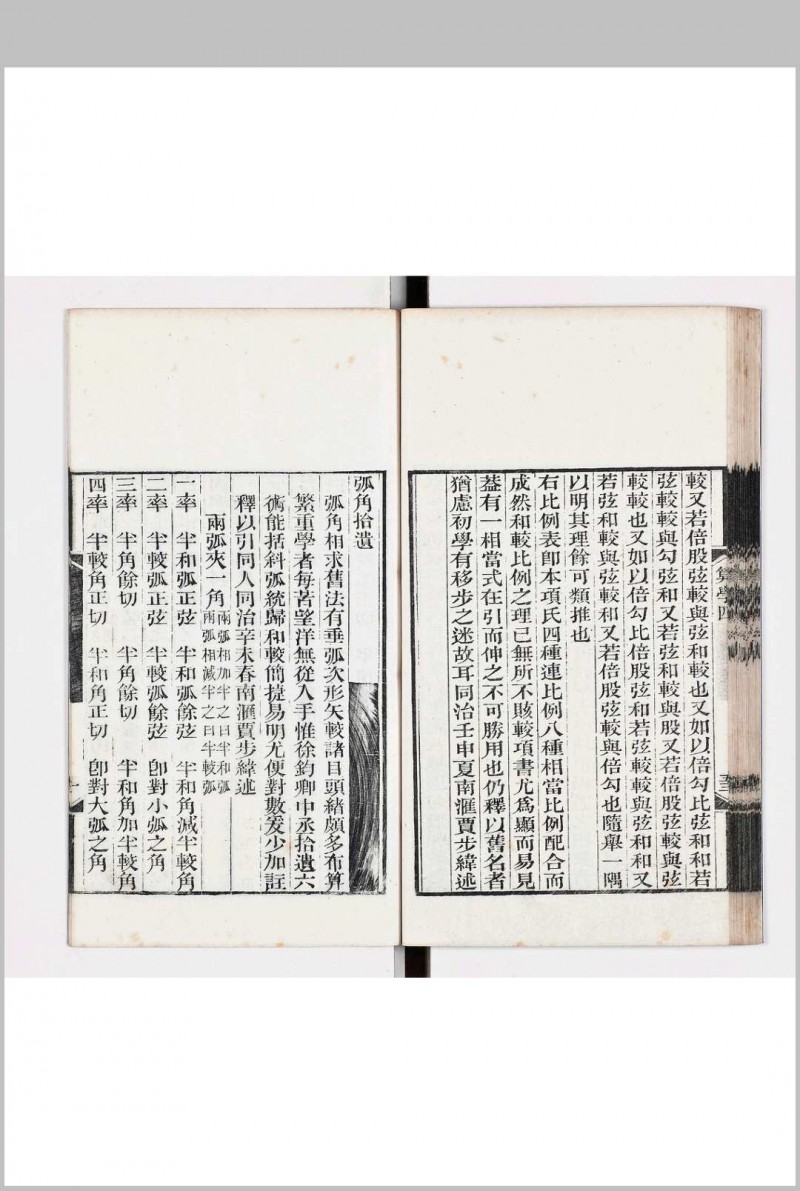 較又若倍股弦較與弦和較也又如以倍勾比弦和和若
弦較較與勾弦和又若弦和較與股又若倍股弦較與弦
較較也又如以倍勾比倍股弦和若弦較較與弦和和又
若弦和較與弦較和又若倍股弦較與倍勾也隨舉一隅
以明其理餘可類推也
右比例表卽本項氏四種連比例八種相當比例配合而
成然和較比例之理已無所不賅較項書尤爲顯而易見
葢有一相當式在引而伸之不可勝用也仍釋以舊名者
猶慮初學有移步之迷故耳同治壬申夏南滙賈步緯述
弧角拾遺
弧角相求舊法有垂弧次形矢較諸目頭緒頗多布算
繁重學者每苦望洋無從入手惟徐鈞卿中丞拾遺六
術能括斜弧統歸和較簡捷易明尤便對數爰少加註
釋以引同人同治辛未春南滙賈步緯述
兩弧夾一角 兩弧相加半之曰半和弧
兩弧相減半之曰半較弧
一率 半和弧正弦 半和弧餘弦 半和角減半較角
二率 半較弧正弦 半較弧餘弦 卽對小弧之角
三率 半角餘切 半角餘切 半和角加半較角
四率 半較角正切 半和角正切 卽對大弧之角